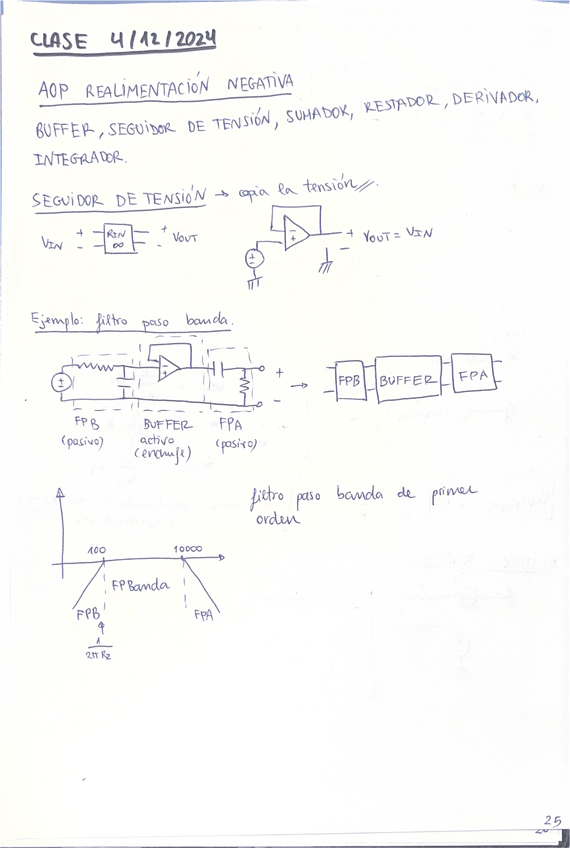 CLASE 4/12/2024
AOP REALIMENTACIÓN NEGATIVA
BUFFER, SEGUIDOR DE TENSIÓN, SUMADOR, RESTADOR, DERIVADOR,
INTEGRADOR.
SEGUIDOR DE TENSIÓN → copia la tensión //.
VIN + - RIN ∞ + - VOUT
+ - VOUT = VIN
Ejemplo: filtro paso banda.
+ - → FPB BUFFER FPA
FPB BUFFER FPA
(pasivo) activo (pasivo)
(enchufe)
filtro paso banda de primer
orden
100 10000
FPBanda
FPB FPA
1
2π RZ
25